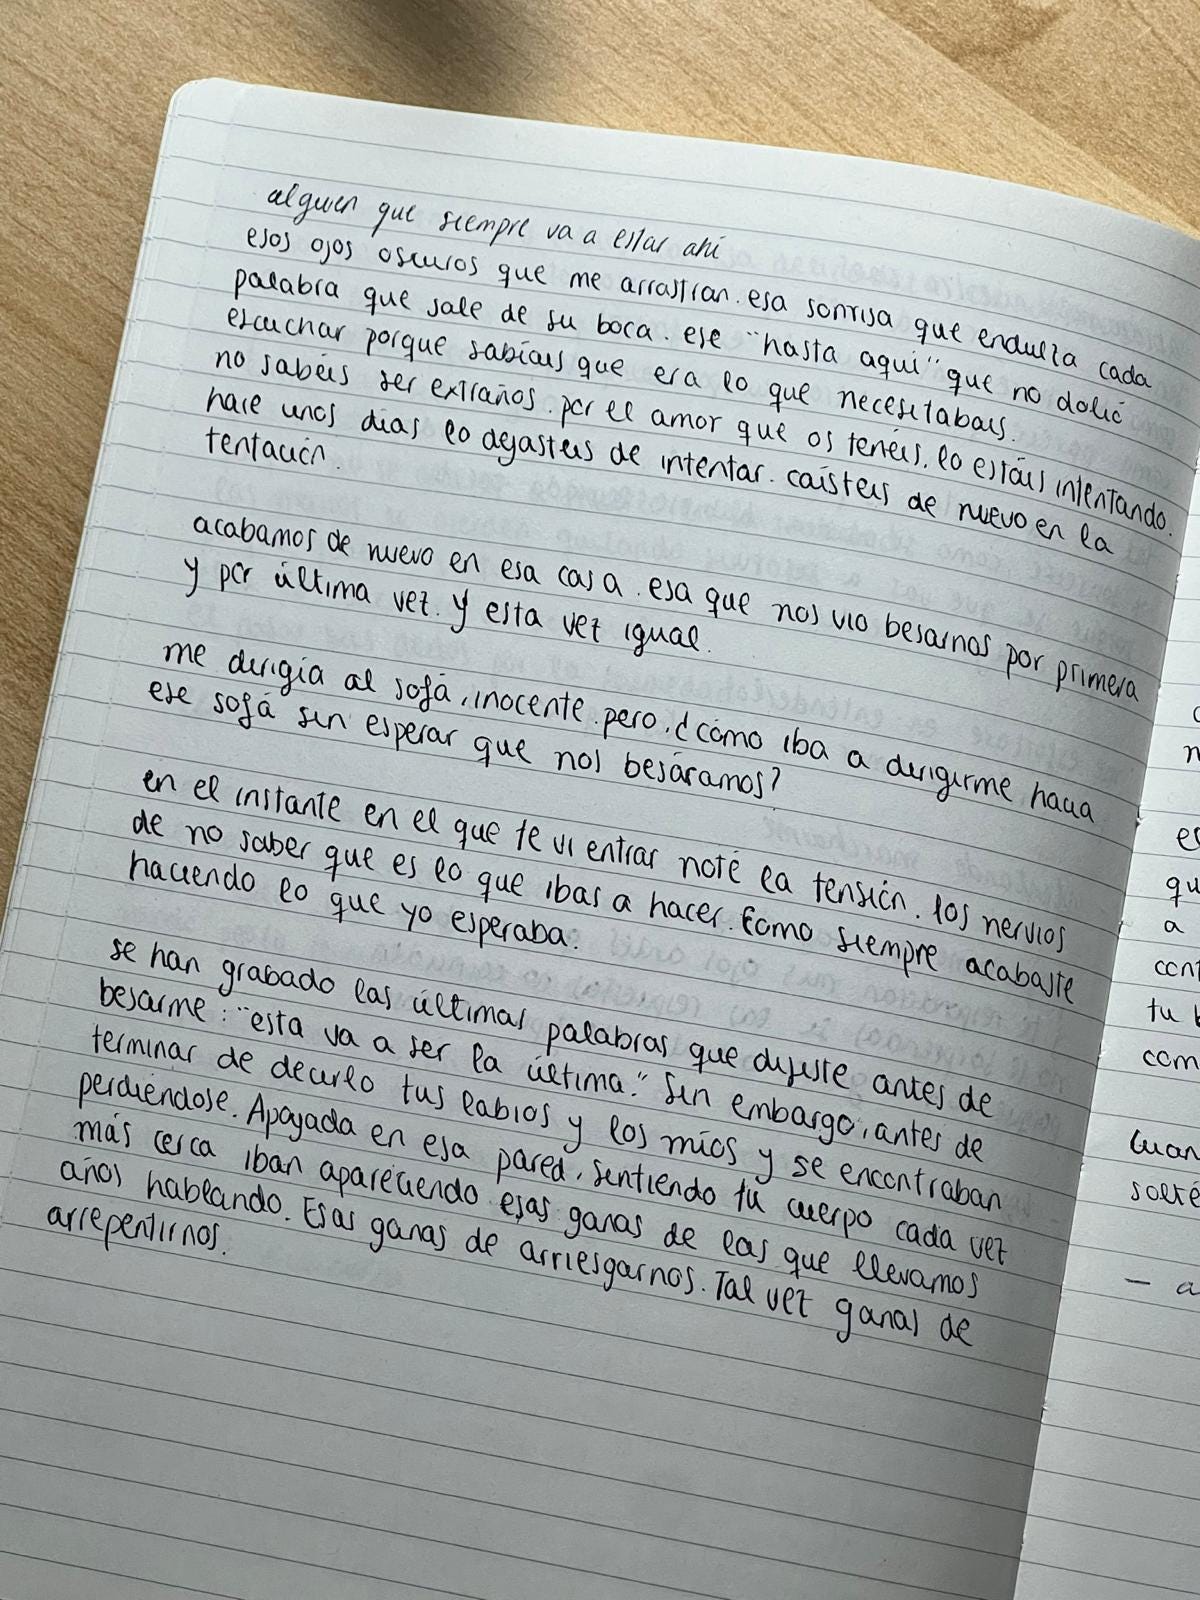 alguien que siempre va a estar ahí
esos ojos oscuros que me arrastran. esa sonrisa que endulza cada
palabra que sale de su boca. ese "hasta aquí" que no dolió
escuchar porque sabíais que era lo que necesitabais.
no sabéis ser extraños. por el amor que os tenéis, lo estáis intentando.
hace unos días lo dejasteis de intentar. caísteis de nuevo en la
tentación.
acabamos de nuevo en esa casa. esa que nos vio besarnos por primera
y por última vez. y esta vez igual.
me dirigía al sofá, inocente. pero, ¿cómo iba a dirigirme hacia
ese sofá sin esperar que nos besáramos?
en el instante en el que te vi entrar noté la tensión. los nervios
de no saber que es lo que ibas a hacer. Como siempre acabaste
haciendo lo que yo esperaba.
se han grabado las últimas palabras que dijiste antes de
besarme: "esta va a ser la última." Sin embargo, antes de
terminar de decirlo tus labios y los míos y se encontraban
perdiéndose. Apoyada en esa pared, sentiendo tu cuerpo cada vez
más cerca iban apareciendo esas ganas de las que llevamos
años hablando. Esas ganas de arriesgarnos. Tal vez ganas de
arrepentirnos.
n
es
qu
a
cont
tu b
com
Cuan
solté
- a